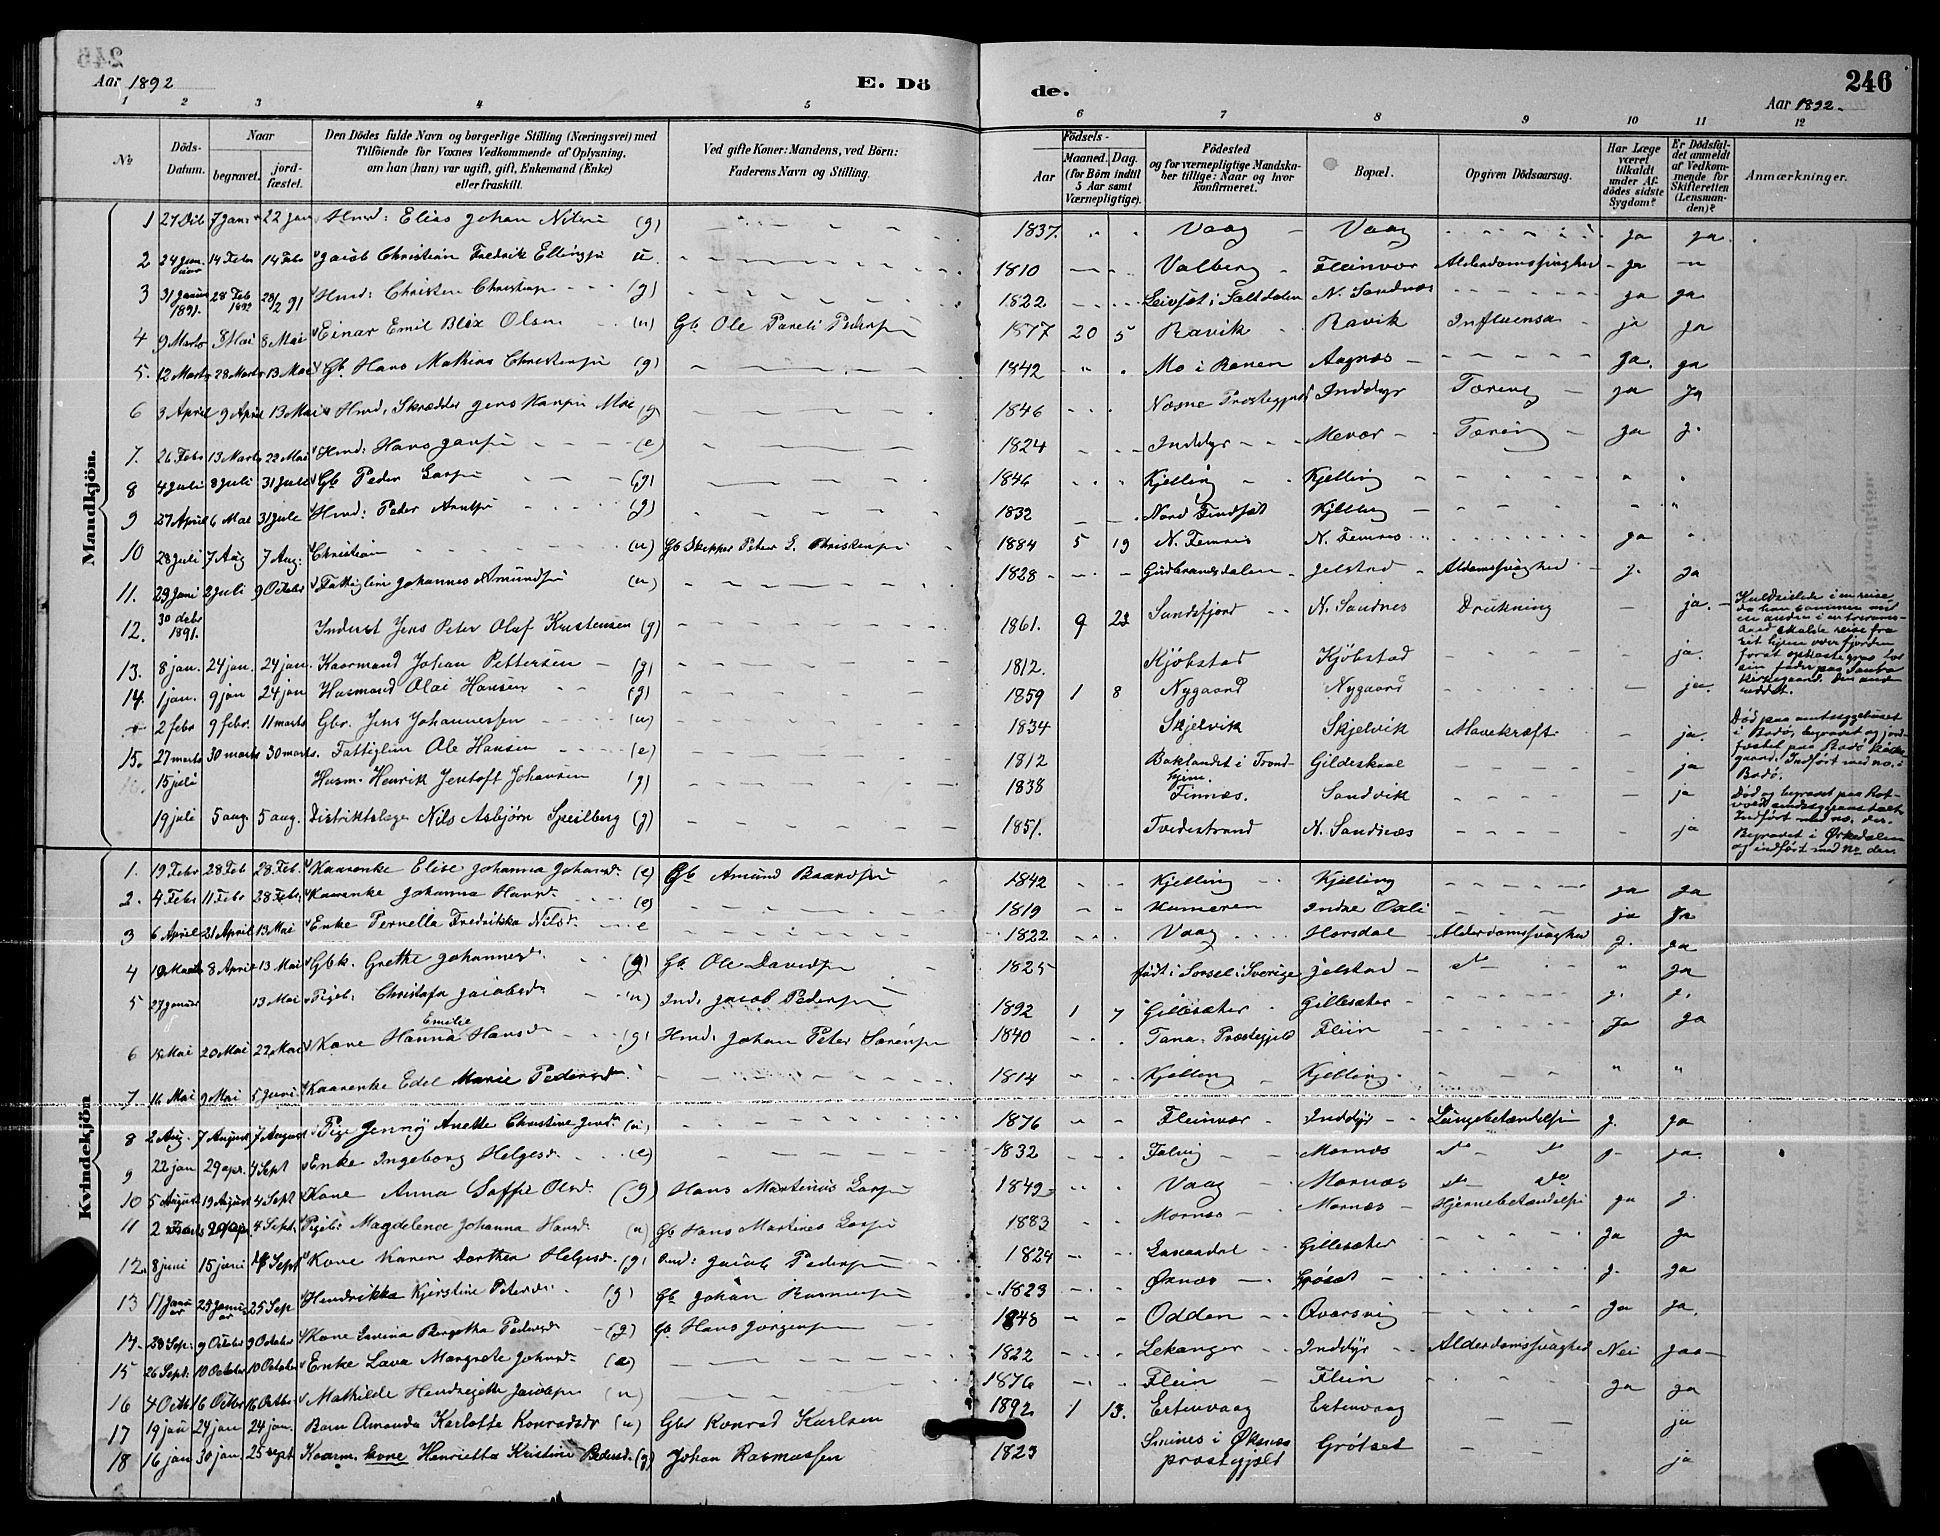 246
Aar 1892
E. Dö
de.
Aar 1892.
1 2 3 4 5 6 7 8 9 10 11 12
No
Döds-Datum.
Naar
begravet.
jord-fæstet.
Den Dödes fulde Navn og borgerlige Stilling (Næringsvei) med
Tilföiende for Voxnes Vedkommende af Oplysning,
om han (hun) var ugift, gift, Enkemand (Enke)
eller fraskilt.
Ved gifte Koner: Mandens, ved Börn:
Faderens Navn og Stilling.
Födsels-
Aar
Maaned. Dag.
(for Börn indtil
5 Aar samt
Værnepligtige).
Födested
og for værnepligtige Mandska-
ber tillige: Naar og hvor
konfirmeret.
Bopæl.
Opgiven Dödsaarsag.
Har Læge
været
tilkaldt
under Af-
dödes sidste
Sygdom?
Er Dödsfal-
det anmeldt
af Vedkom-
mende for
Skifteretten
(Lensman-
den)?
Anmærkninger.
Mandkjön.
1 27 Dcb 7 Jan 22 Jan Hmd: Elias Johan Nilsen (g) 1837. Vaag Vaag ja ja
2 24 Januar 14 Febr 14 Febr Jacob Christian Fredrik Ellingsen u 1810 Valberg Fleinvær Alderdomssvaghed ja
3 31 Januar 1891. 28 Feb 1892 28/2 91 Hmd: Christen Christensen (g) 1822 Leivset i Saltdalen N. Sandnes ja ja
4 9 Marts 8 Mai 8 Mai Einar Emil Blix Olsen (u) Gb Ole Pareli Pedersen 1877 20 5 Ravik Ravik Influensa ja ja
5. 12 Marts 28 Marts 13 Mai Gb. Hans Mathias Christensen (g) 1842 Mo i Ranen Aagnes ja. ja
6 3 April 9 April 13 Mai Hmd. Skrædder Jens Hansen Moe (g) 1846 Næsne Præstegjeld Inddyr Tæring ja ja
7. 26 Febr 13 Marts 22 Mai Hmd: Hans Jansen (e) 1824 Inddyr Mevær Tæring ja j.
8 4 Juli 8 Juli 31 Juli Gb Peder Larsen (g) 1846 Kjelling Kjelling
9 27 April 6 Mai 31 Jule Hmd: Peder Arntsen (g) 1832 Nord Finset Kjelling
10 28 Juli 7 Aug 7 Aug. Christian (u) Gb Skipper Peter S. Christensen 1884 5 19 N. Femris N. Femris ja
11. 29 Juni 2 Juli 9 October Fattiglem Johannes Amundsen (u) 1828 Gudbrandsdalen Jelstad Aldomssvaghed j. ja
12. 30 debr 1891. Inderst Jens Peter Oluf Kristensen (g) 1861. 9 23 Sandsfjord N. Sandnes Drukning ja.
13. 8 jan. 24 jan. 24 jan Kaarmand Johan Pettersen (g) 1812. Kjöbstad Kjöbstad ja.
14. 1 jan. 9 jan 24 jan Husmand Olai Hansen (g) 1859 1 8 Nygaard Nygaard ja.
2 febr 9 febr. 11 marts Gbr. Jens Johannessen (u) 1834 Skjelvik Skjelvik Mavekræft ja.
15. 27 marts 30 marts 30 marts. Fattiglem Ole Hansen (e) 1812 Baklandet i Trondhjem. Gildeskaal ja
15 juli Husm. Henrik Jentoft Johansen (g) 1838 Finnæs. Sandvik ja
19 juli 5 aug. 5 aug. Distriktslæge Nils Asbjørn Speilberg (g) 1851. Tvedestrand N. Sandnæs ja
Kuldseilede i en reise
da han sammen med
en anden i en
skulde reise fra
sit hjem over fjorden
sin fader paa
Kirkegaard. Den anden
reddet.
Död paa amtssygehuset
i Bodö, begravet og jord-
fæstet paa Bodö Kirke-
gaard. Indført med no. i
Bodö.
Död og begravet paa Rot-
vold sindssygeanstalt
Indført med no. der.
Begravet i Ørkedalen
og indført med No der
Kvindekjön
1. 19 Febr 28 Feb 28 Feb. Kaarenke Elise Johanna Johansd. (e) Gb Amund Baardsen 1842 Kjelling Kjelling ja ja
2. 4 Febr 11 Febr 28 Febr Kaarenke Johanna Hansd. (e) 1819 Kumeren Indre Oxli ja ja
3 6 April 21 April 13 Mai Enke Pernella Fredrikka Nilsd. e 1822 Vaag Horsdal Alderdomssvaghed j. ja
4 19 Marts 8 April 13 Mai Gbk. Grethe Johannesd. (g) Gb Ole Davidsen 1825 født i Sorsel i Sverige Jelstad do ja
5 27 Januar 13 Mai Pigeb. Christofa Jacobsd. (u) Ind: Jacob Pedersen 1892 1 7 Gillesæter Gillesæter j. j.
6 15 Mai 20 Mai 22 Mai Kone Hanna Emilie Hansd (g) Hmd: Johan Peter Sørensen 1840 Tana Præstegjeld Flein ja ja
7 16 Mai 9 Mai 5 Juni Kaarenke Edel Marie Pedersd. 1814 Kjelling Kjelling
8 2 Aug. 7 August 7 August Pige Jennÿ Anette Christine Jensd. (u) 1876 Fleinvær Inddyr Lungebetændelse j. ja
9 22 jan 29 apr. 4 Sept Enke Ingeborg Helgesd. (e) 1832 Falvig Mornes do do j. ja.
10 5 August 19 August 4 Sept Kone Anna Soffie Olsd. (g) Hans Martinus Larsen 1849 Vaag Mornæs do do
11 2 29 apr. 4 Sept. Pigeb. Magdelena Johanna Hansd. (u) Gb Hans Martines Larsen 1883 Mornæs Mornæs Hjernebetændelse ja j.
12. 8 juni 15 juni 4 Sept Kone Karen Dorthea Helgesd. (g) Ind: Jacob Pedersen 1824 Gillesæter ja ja
13 17 Januar 29 Januar 25 Sep Hendrikka Kjerstine Petersd. (g) Gb Johan Rasmussen 1823 Øxnæs Gröset j. ja
14. 29 Sep. 9 October 9 October Kone Lavina Bergitha Pedersd. (g) Gb Hans Jørgensen 1848 Odden Qvarsvig ja ja.
15 26 Sept. 10 October 10 October Enke Lava Margrete Johnsd. (e) 1822 Lekanger Inddyr Alderdomssvaghed Nei jaa
16 4 Octb 16 Octbr 16 Octbr Mathilde Hendrigitte Jacobsen (u) 1876 Flein Flein ja ja
17 19 jan 24 jan 24 jan. Barn Amanda Karlotte Konradsdr (u) Gbr Konrad Karlsen 1892 1 13. Ertenvaag Ertenvaag ja
18 16 jan 30 jan. 25 sept Kaarm. kone Henrietta Kristine Pedersd. (g) Johan Rasmussen 1823 Sminæs i Øksnes præstegjæld Grötset ja